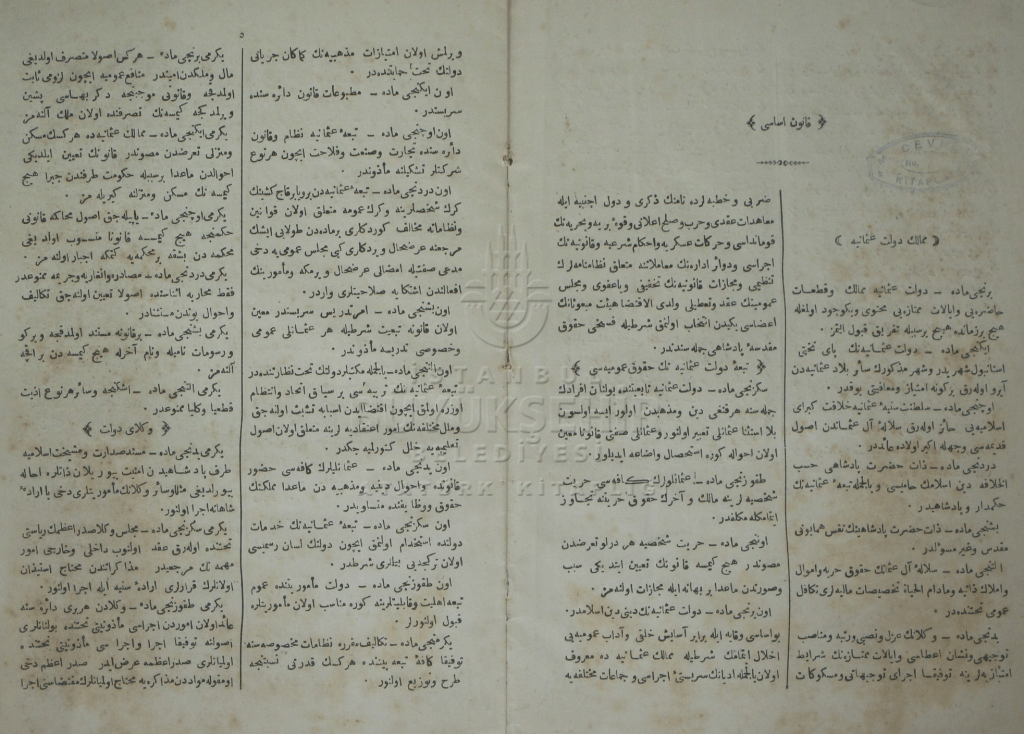 ﴿ قانون اساسی ﴾
﴿ ممالك دولت عثمانیه ﴾
برنجی ماده – دولت عثمانیه ممالك وقطعات
حاضره‌یی وایالات ممتازه‌یی محتوی ویكوجود اولمغله
هیچ برزمانده هیچ برسبله تفریق قبول ایتمز.
ایكنجی ماده – دولت عثمانیه‌نك پای تختی
استانبول شهریدر وشهر مذكورك سائر بلاد عثمانیه‌دن
آیرو اوله‌رق برگونه امتیاز ومعافیتی یوقدر.
اوچنجی ماده – سلطنت سنیهٔ عثمانیه خلافت كبرای
اسلامیه‌یی حائز اوله‌رق سلالهٔ آل عثماندن اصول
قدیمه‌سی وجهله اكبر اولاده عائددر.
دردنجی ماده – ذات حضرت پادشاهی حسب
الخلافه دین اسلامك حامیسی وبالجمله تبعهٔ عثمانیه‌نك
حكمدار وپادشاهیدر.
بشنجی ماده – ذات حضرت پادشاهینك نفس همایونی
مقدس وغیر مسؤلدر.
التنجی ماده – سلالهٔ آل عثمانك حقوق حریه واموال
واملاك ذاتیه ومادام الحیاة تخصیصات مالیه‌لری تكافل
عمومی تحتنده‌در.
یدنجی ماده – وكلانك عزل ونصبی ورتبه ومناصب
توجیهی ونشان اعطاسی وایالات ممتازه‌نك شرائط
امتیازیه‌لرینه توفیقا اجرای توجیهاتی ومسكوكات
ضربی وخطبه‌لرده نامنك ذكری ودول اجنبیه ایله
معاهدات عقدی وحرب وصلح اعلانی وقوهٔ بریه وبحریه‌نك
قومانداسی وحركات عسكریه واحكام شرعیه وقانونیه‌نك
اجراسی ودوائر اداره‌نك معاملاتنه متعلق نظامنامه‌لرك
تنظیمی ومجازات قانونیه‌نك تخفیفی ویاعفوی ومجلس
عمومینك عقد وتعطیلی ولدی الاقتضا هیئت مبعوثانك
اعضاسی یكیدن انتخاب اولنمق شرطیله فسخی حقوق
مقدسهٔ پادشاهی جمله‌سندندر.
﴿ تبعهٔ دولت عثمانیه‌نك حقوق عمومیه‌سی ﴾
سكزنجی ماده – دولت عثمانیه تابعیتنده بولنان افرادك
جمله‌سنه هرقنغی دین ومذهبدن اولور ایسه اولسون
بلا استثنا عثمانلی تعبیر اولنور وعثمانلی صفتی قانونا معین
اولان احواله كوره استحصال واضاعه ایدیلور.
طقوزنجی ماده – عثمانلولرك كافه‌سی حریت
شخصیه‌لرینه مالك وآخرك حقوق حریتنه تجاوز
ایتمامكله مكلفدر.
اوننجی ماده – حریت شخصیه هر درلو تعرضدن
مصوندر هیچ كیمسه قانونك تعیین ایتدیكی سبب
وصورتدن ماعدا بر بهانه ایله مجازات اولنه‌مز.
اون برنجی ماده – دولت عثمانیه‌نك دینی دین اسلامدر.
بواساسی وقایه ایله برابر آسایش خلقی وآداب عمومیه‌یی
اخلال ایتمامك شرطیله ممالك عثمانیه ده معروف
اولان بالجمله ادیانك سربستئ اجراسی وجماعات مختلفه‌یه
٥
ویرلمش اولان امتیازات مذهبیه‌نك كماكان جریانی
دولتك تحت حمایتنده‌در.
اون ایكنجی ماده – مطبوعات قانون دائره‌سنده
سربستدر.
اون اوچنجی ماده – تبعهٔ عثمانیه نظام وقانون
دائره‌سنده تجارت وصنعت وفلاحت ایچون هرنوع
شركتلر تشكیلنه مأذوندر.
اون دردنجی ماده – تبعهٔ عثمانیه‌دن بر ویا برقاچ كشینك
كرك شخصلرینه وكرك عمومه متعلق اولان قوانین
ونظاماته مخالف كوردكلری برماده‌دن طولایی ایشك
مرجعنه عرضحال ویردكلری كبی مجلس عمومی‌یه دخی
مدعی صفتیله امضالی عرضحال ویرمكه ومأمورینك
افعالندن اشتكایه صلاحیتلری واردر.
اون بشنجی ماده – امر تدریس سربستدر معین
اولان قانونه تبعیت شرطیله هر عثمانلی عمومی
وخصوصی تدریسه مأذوندر.
اون التنجی ماده – بالجمله مكتبلر دولتك تحت نظارتنده‌در
تبعهٔ عثمانیه‌نك تربیه‌سی بر سیاق اتحاد وانتظام
اوزره اولمق ایچون اقتضا ایدن اسبابه تشبث اولنه‌جق
وملل مختلفه‌نك امور اعتقادیه‌لرینه متعلق اولان اصول
تعلیمیه‌یه خلل كتورلمیه‌جكدر.
اون یدنجی ماده – عثمانلیلرك كافه‌سی حضور
قانونده واحوال دینیه ومذهبیه‌دن ماعدا مملكتك
حقوق ووظائفنده متساویدر.
اون سكزنجی ماده – تبعهٔ عثمانیه‌نك خدمات
دولتده استخدام اولنمق ایچون دولتك لسان رسمیسی
اولان تركجه‌یی بیلملری شرطدر.
اون طقوزنجی ماده – دولت مأموریتنده عموم
تبعه اهلیت وقابلیتلرینه كوره مناسب اولان مأموریتلره
قبول اولنورلر.
یكرمنجی ماده – تكالیف مقرره نظامات مخصوصه‌سنه
توفیقا كافهٔ تبعه بیننده هركسك قدرتی نسبتنده
طرح وتوزیع اولنور.
یكرمی برنجی ماده – هركس اصولا متصرف اولدیغی
مال وملكدن امیندر منافع عمومیه ایچون لزومی ثابت
اولمدقجه وقانونی موجبنجه دكر بهاسی پشین
ویرلمدكجه كیمسه‌نك تصرفنده اولان ملك آلنه‌مز
یكرمی ایكنجی ماده – ممالك عثمانیه‌ده هركسك مسكن
ومنزلی تعرضدن مصوندر قانونك تعیین ایلدیكی
احوالدن ماعدا برسببله حكومت طرفندن جبرا هیچ
كیمسه‌نك مسكن ومنزلنه كیریله‌مز.
یكرمی اوچنجی ماده – یاپیله‌جق اصول محاكمه قانونی
حكمنجه هیچ كیمسه قانونا منسوب اولدیغی
محكمه‌دن بشقه برمحكمه‌یه كتمكه اجبار اولنه‌مز.
یكرمی دردنجی ماده – مصادره وانغاریه وجریمه ممنوعدر
فقط محاربه اثناسنده اصولا تعیین اولنه‌جق تكالیف
واحوال بوندن مستثنادر.
یكرمی بشنجی ماده – برقانونه مستند اولمدقجه ویركو
ورسومات نامیله ونام آخرله هیچ كیمسه‌دن بر اقچه
آلنه‌مز
یكرمی التنجی ماده – اشكنجه وسائر هرنوع اذیت
قطعیا وكلیا ممنوعدر.
﴿ وكلای دولت ﴾
یكرمی یدنجی ماده – مسند صدارت ومشیخت اسلامیه
طرف پادشاهیدن امنیت بیوریلان ذاتلره احاله
بیورلدیغی مثللو سائر وكلانك مأموریتلری دخی با ارادهٔ
شاهانه اجرا اولنور.
یكرمی سكزنجی ماده – مجلس وكلا صدر اعظمك ریاستی
تحتنده اوله‌رق عقد اولنوب داخلی وخارجی امور
مهمه‌نك مرجعیدر مذاكراتندن محتاج استیذان
اولانلرك قرارلری ارادهٔ سنیه ایله اجرا اولنور.
یكرمی طقوزنجی ماده – وكلادن هربری دائره‌سنه
عائد اولان اموردن اجراسی مأذونیتی تحتنده بولنانلری
اصولنه توفیقا اجرا واجراسی مأذونیتی تحتنده
اولمیانلری صدراعظمه عرض ایدر صدر اعظم دخی
اومقوله مواددن مذاكره‌یه محتاج اولمیانلرك مقتضاسنی اجرا